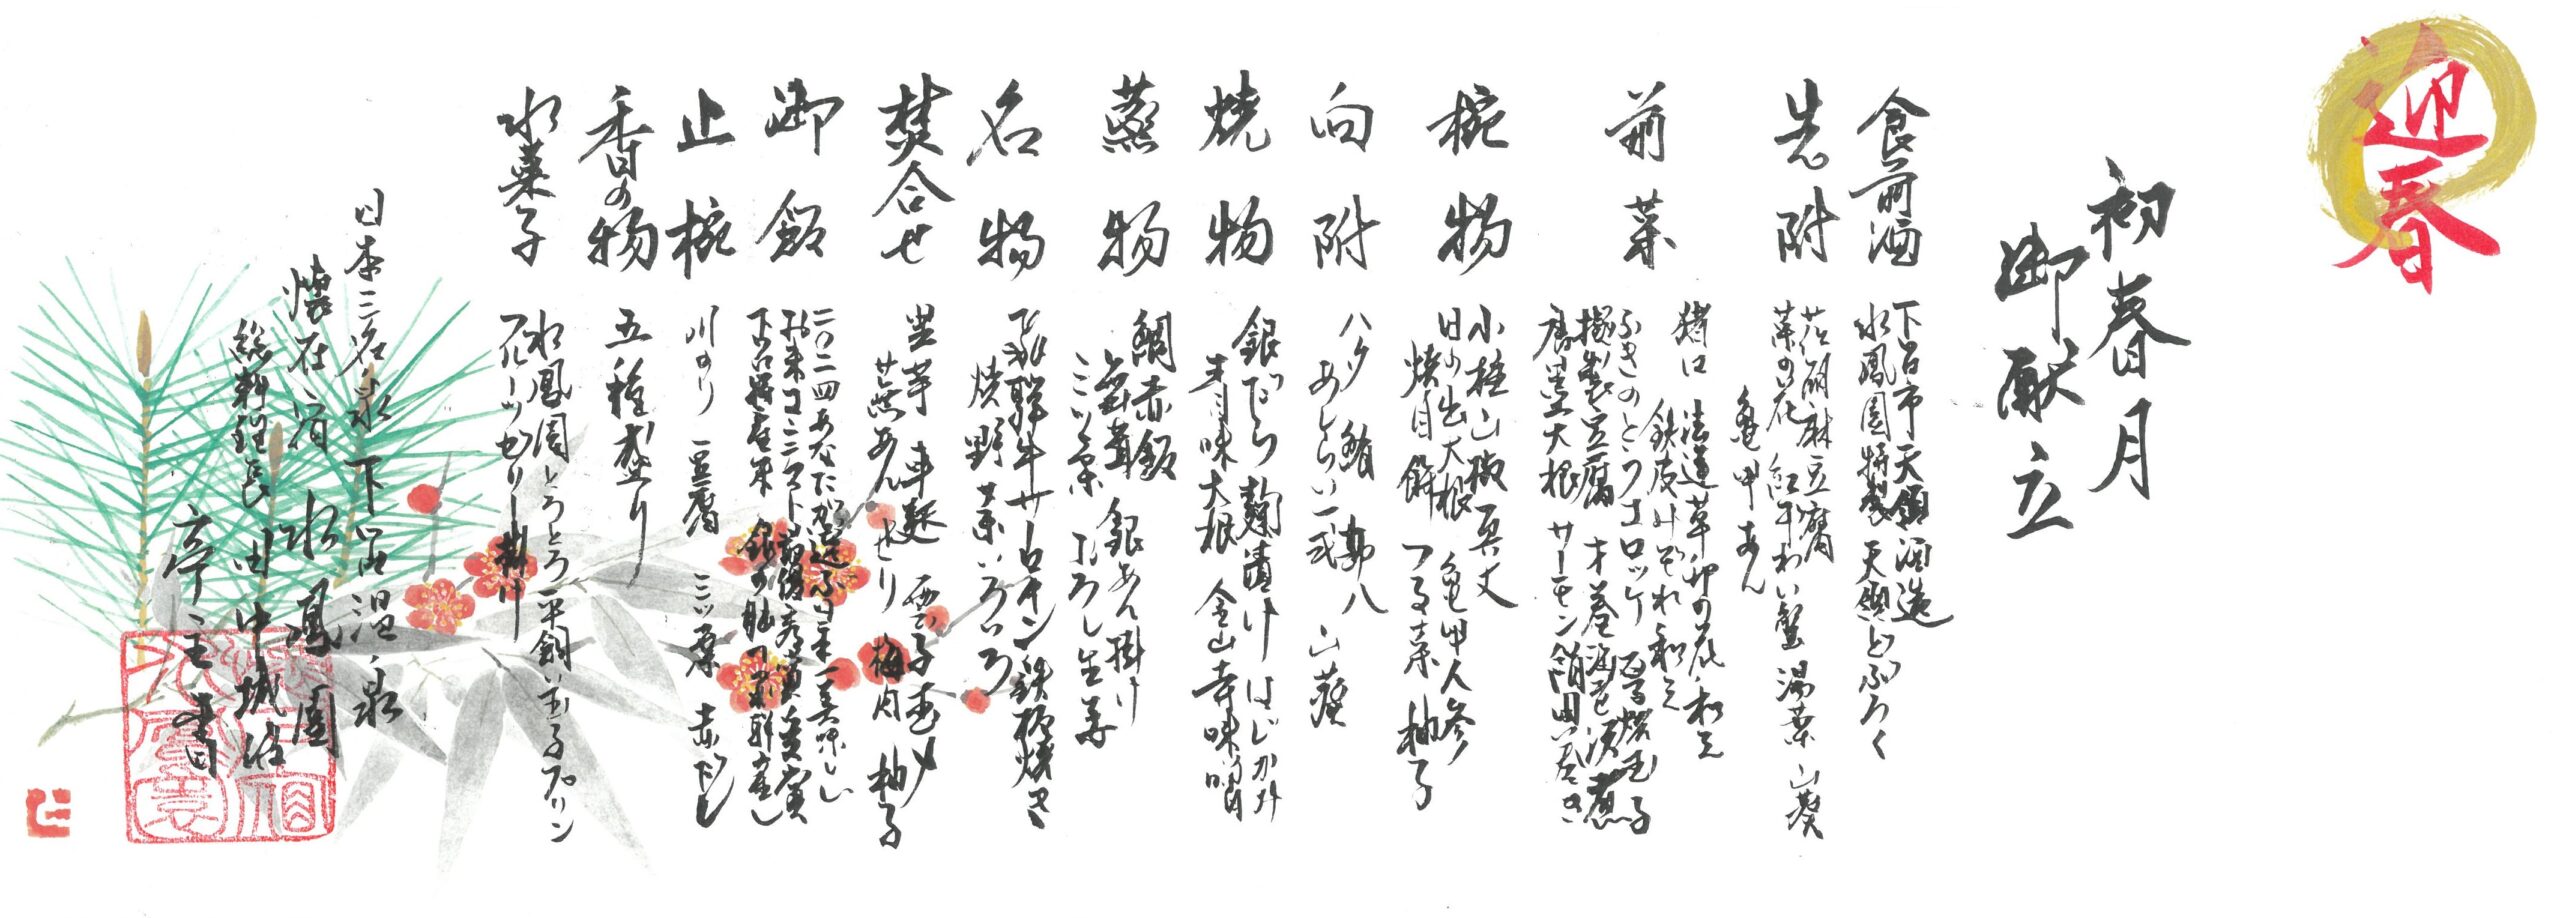 迎春
初春月
御献立
食前酒
下呂市天領酒造
水鳳園特製 天領どぶろく
先附
花胡麻豆腐
菜の花 紅干わい蟹 湯葉 山葵
亀甲あん
前菜
猪口 法蓮草卯の花和え
鉄皮みぞれ和え
ふきのとうコロッケ
擬製豆腐 才巻海老 涙煮
唐墨大根 サーモン絹田巻き
椀物
小柱山椒真丈
日の出大根 亀甲人参
焼目餅 つる菜 柚子
向附
ハタ 鮪 勘八 山葵
あしらい一式
焼物
銀だら麹漬け はじかみ
青味大根 金山寺味噌
蒸物
鯛赤飯 銀あん掛け
舞茸
三ツ葉 おろし生姜
名物
飛騨牛サーロイン鉄板焼き
焼野菜いろいろ
焚合せ
里芋 車麩
蕪あん せり 梅肉 柚子
御飯
二〇二四あなたが選ぶ日本一美味しい
お米コンテスト
下呂市産米 銀の朏 飛騨産
止椀
川のり 豆腐 三ツ葉 赤だし
香の物
五種盛り
水菓子
水鳳園とろとろ平飼い玉子プリン
フルーツゼリー掛け
日本三名泉 下呂温泉
懐石宿 水鳳園
総料理長 田中城治
亭主